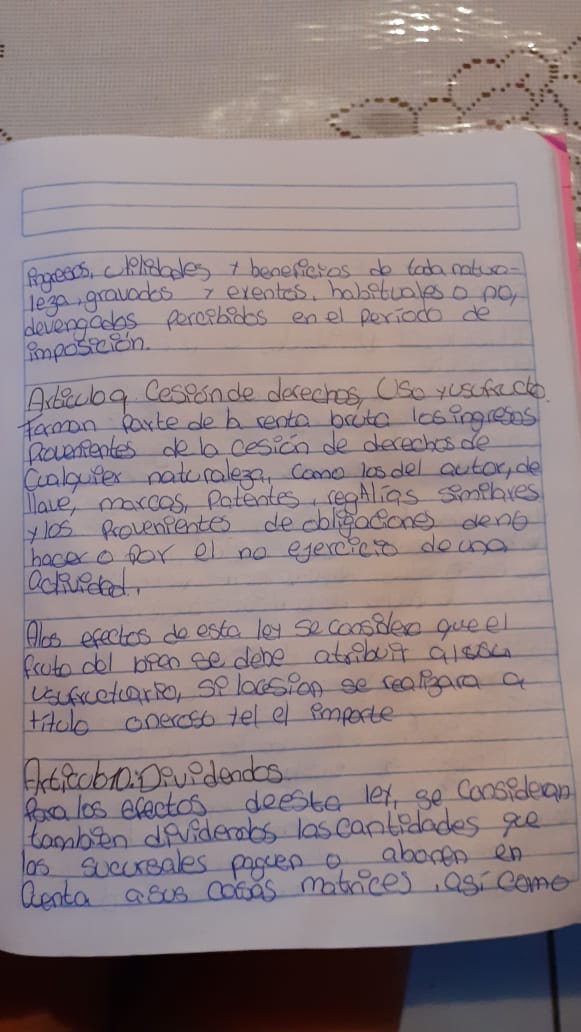 Ingresos, utilidades y beneficios de toda natura-
leza, gravados y exentos, habituales o no,
devengados percibidos en el período de
imposición.
Articulo 9 Cesión de derechos, Uso y usufructo.
Forman parte de la renta bruta los ingresos
Provenientes de la cesión de derechos de
Cualquier naturaleza, como los del autor, de
llave, marcas, Patentes, regalías similares
y los provenientes de obligaciones de no
hacer o por el no ejercicio de una
actividad.
A los efectos de esta ley se considera que el
fruto del bien se debe atribuir al
usufructuario, si la cesion se realizara a
titulo oneroso tel el importe
Articulo 10: Dividendos
Para los efectos de esta ley, se consideran
también dividendos las cantidades que
las sucursales paguen o abonen en
Cuenta a sus casas matrices, así como